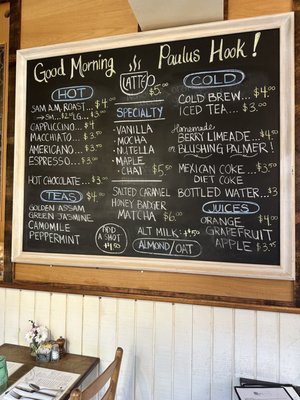 Good Morning Paulus Hook!
HOT
SAM A.M. ROAST
CAPPUCCINO
MACCHIATO
AMERICANO
ESPRESSO
HOT CHOCOLATE
TEAS $4
GOLDEN ASSAM
GREEN JASMINE
CAMOMILE
PEPPERMINT
LATTÉ
SPECIALTY
- VANILLA
- MOCHA
- NUTELLA
- MAPLE
- CHAI
SALTED CARAMEL
HONEY BADGER
MATCHA $6
ADD
A SHOT
ALT MILK
ALMOND/OAT
COLD
COLD BREW
ICED TEA
Homemade:
BERRY LIMEADE
or
BLUSHING PALMER!
MEXICAN COKE
DIET COKE
BOTTLED WATER
JUICES
ORANGE
GRAPEFRUIT
APPLE